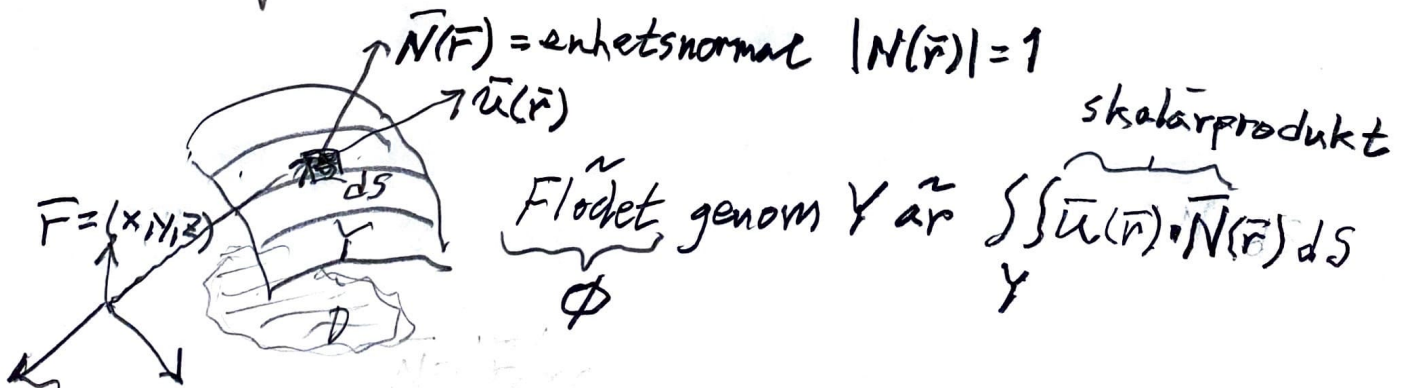 N̄(r̄) = enhetsnormal |N(r̄)| = 1
ū(r̄)
skalärprodukt
dS
r̄ = (x,y,z)
Y
Flödet genom Y är ∫∫ ū(r̄)·N̄(r̄) dS
Y
Φ
D